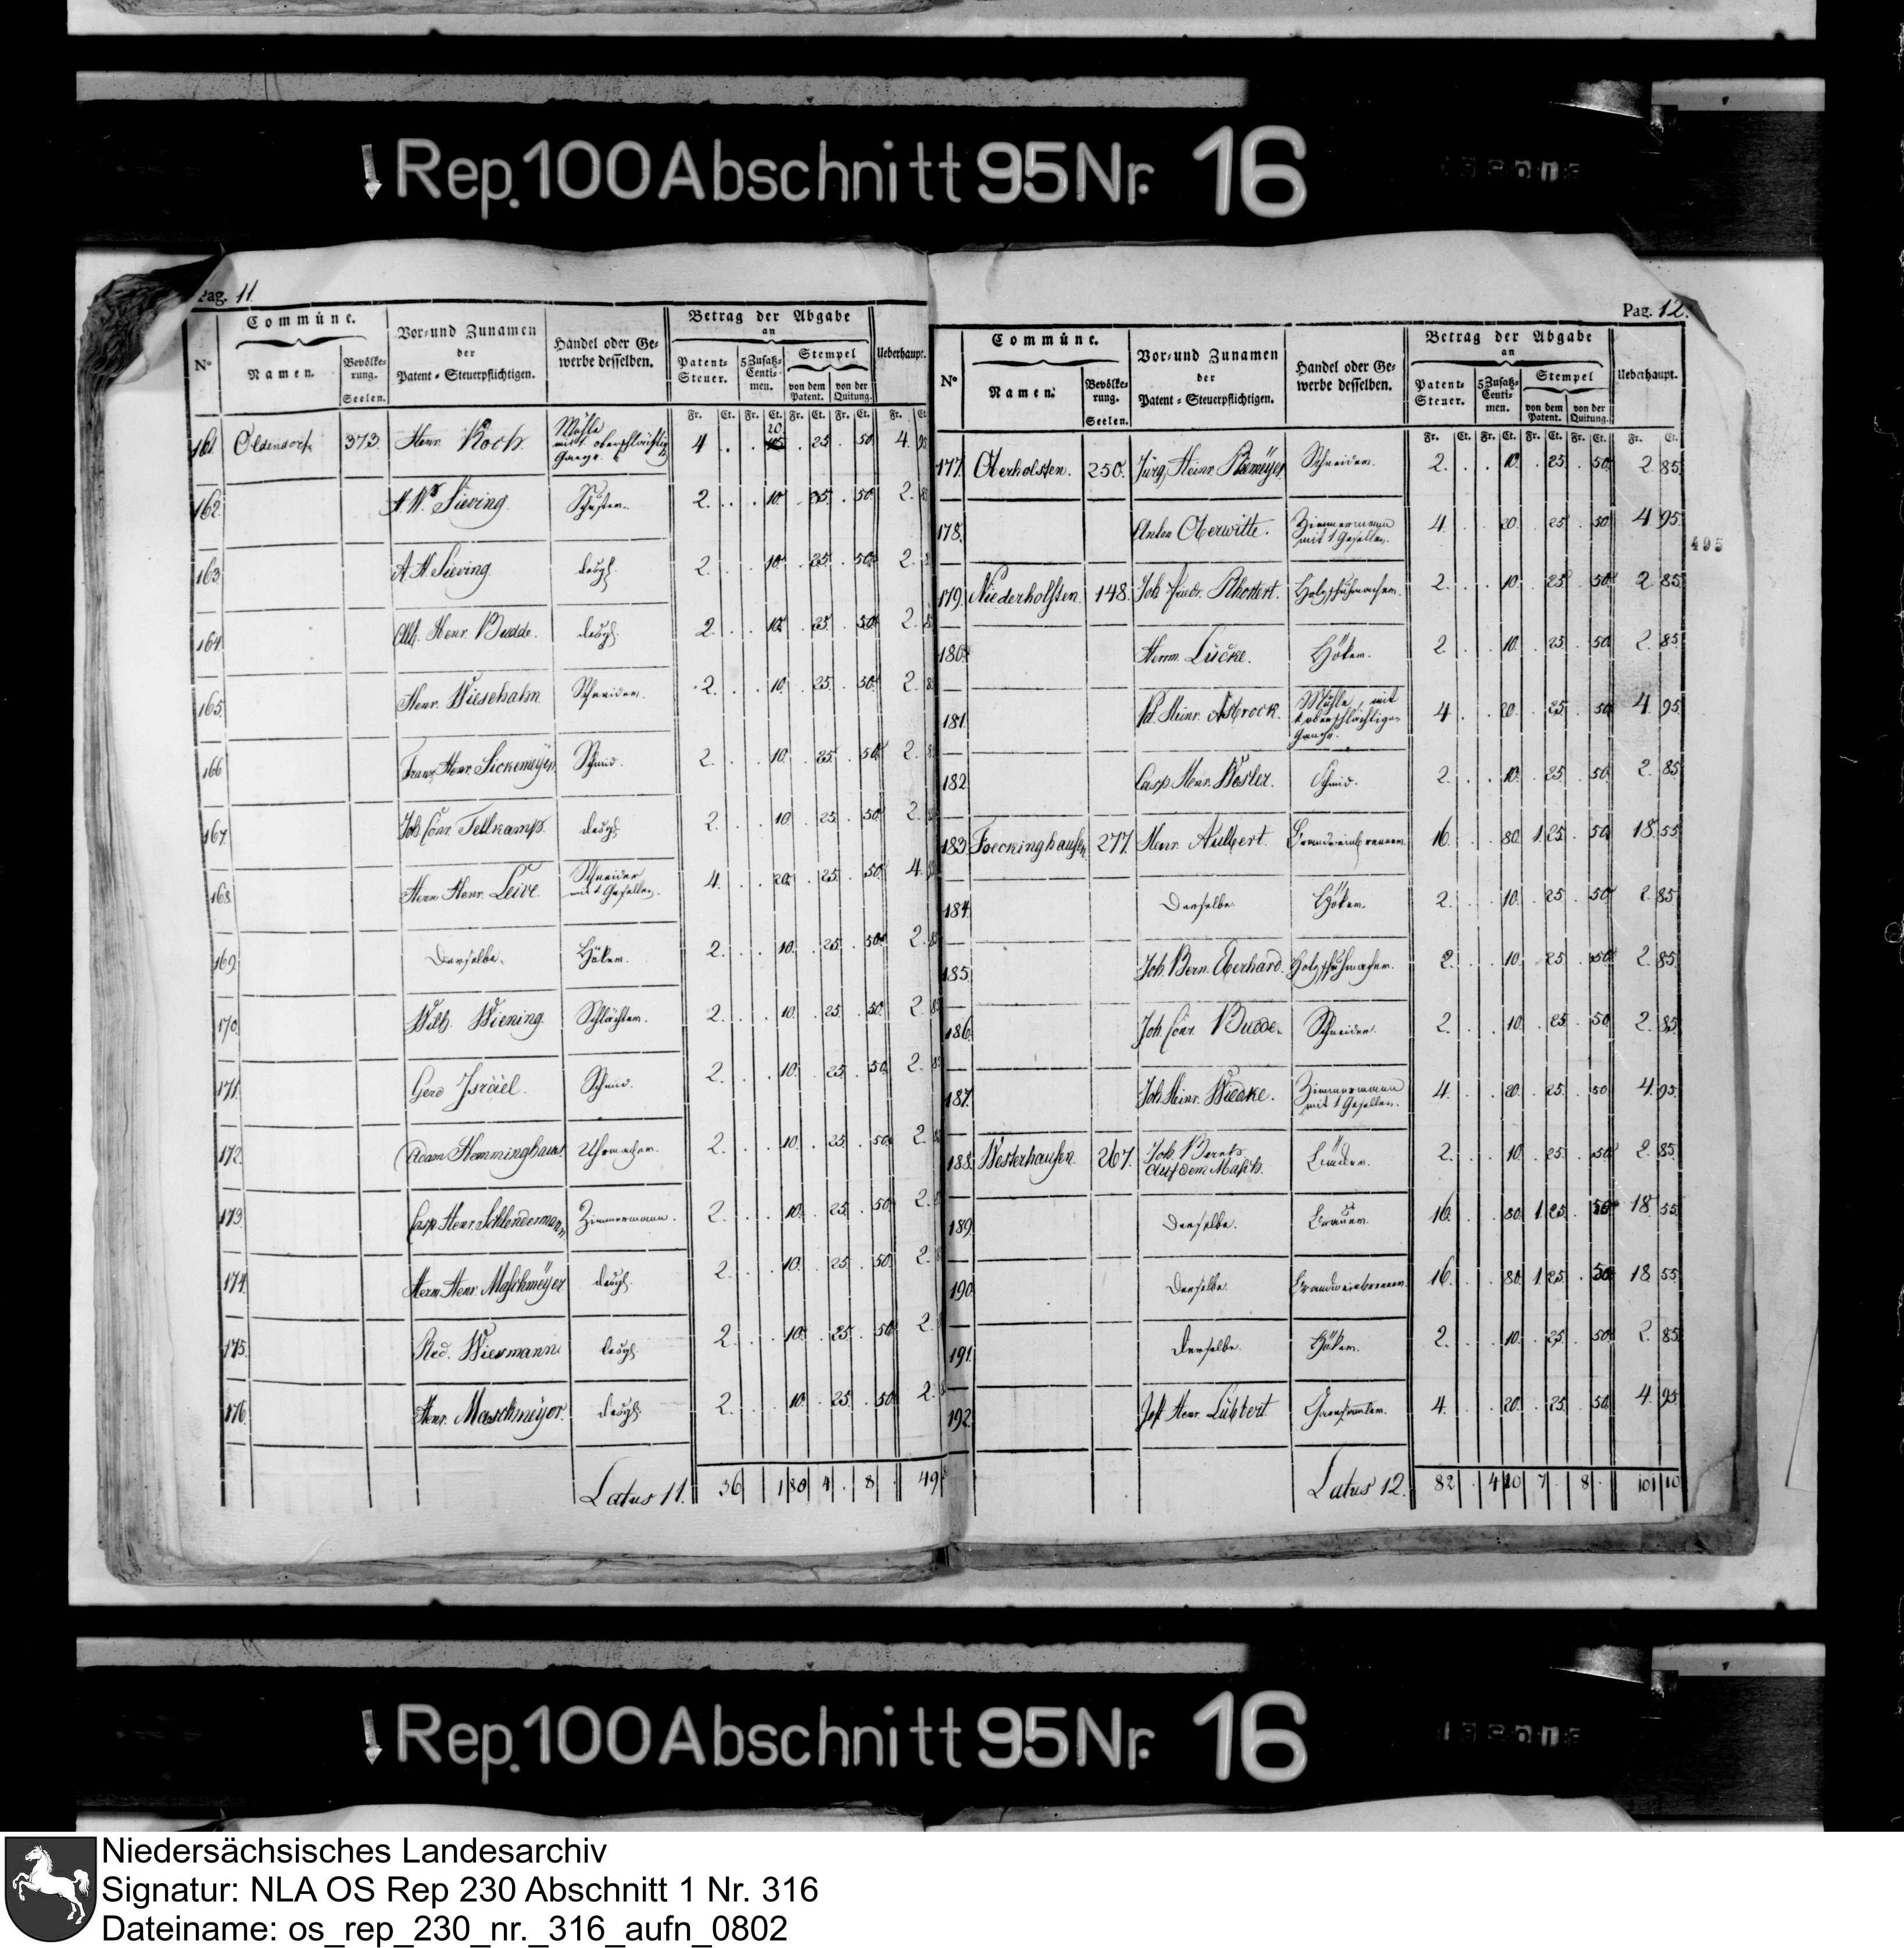 Rep. 100 Abschnitt 95 Nr. 16
Pag. 11.
Commüne.
Vor- und Zunamen der Patent-Steuerpflichtigen.
Handel oder Gewerbe desselben.
Betrag der Abgabe an
Ueberhaupt.
N° Namen. Bevölkerung. Seelen. Patent-Steuer. 5 Zusatz-Centimen. Stempel von dem Patent. von der Quitung.
Fr. Ct. Fr. Ct. Fr. Ct. Fr. Ct. Fr. Ct.
161. Oldendorf 373. Henr. Koch. Mühle mit 1. oberschlächtig. Gange. 4 . . 20 . 25 . 50 4. 95
162. Sieving. Schuster. 2. . . 10 . 25 . 50 2. 85
163. A. H. Sieving. desgl. 2. . . 10 . 25 . 50 2.
164. Alb. Henr. Budde. desgl. 2. . . 10 . 25 . 50 2.
165. Henr. Wiesehahn Schneider. 2. . . 10. . 25. . 50. 2.
166 Franz Henr. Sickemeÿer. Schmid. 2. . . 10. . 25. . 50. 2.
167. Joh Conr. Tellkamp. desgl. 2. . . 10 . 25. . 50 2.
168. Herm Henr. Leive. Schneider mit 1 Gesellen. 4. . . 20. . 25 . 50 4.
169. Derselbe. Höker. 2. . . 10. . 25. . 50 2.
170. Wilh. Wiening. Schlächter. 2. . . 10. . 25 . 50. 2.
171. Gerd Israël. Schmid. 2. . . 10. . 25. . 50. 2.
172. Adam Hemminghaus. Uhrmacher. 2. . . 10. . 25. . 50. 2.
173. Casp. Henr. Schlendermann Zimmermann. 2. . . 10. . 25. . 50 2.
174. Herm Henr. Maschmeÿer desgl. 2. . . 10. . 25. . 50. 2.
175. Red. Wiesmann desgl. 2. . . 10. . 25. . 50 2.
176. Henr. Maschmeÿer. desgl. 2. . . 10. . 25. . 50. 2.
Latus 11. 36 . 1 80 4 . 8 . 49
Pag. 12.
Commüne.
Vor- und Zunamen der Patent-Steuerpflichtigen.
Handel oder Gewerbe desselben.
Betrag der Abgabe an
Ueberhaupt.
N° Namen. Bevölkerung. Seelen. Patent-Steuer. 5 Zusatz-Centimen. Stempel von dem Patent. von der Quitung.
Fr. Ct. Fr. Ct. Fr. Ct. Fr. Ct. Fr. Ct.
177. Oberholsten. 250. Jürg Heinr. Schneider. 2. . . 10. . 25 . 50 2 85
178. Anton Oberwitte. Zimmermann mit 1 Gesellen. 4. . . 20. . 25 . 50 4 95.
495
179. Niederholsten. 148. Joh Friedr. Holzschuhmacher. 2. . . 10. . 25 . 50 2 85
180. Herm. Lücke. Höker. 2 . . 10. . 25 . 50 2. 85
181. Heinr. Asbrock. Mühle, mit 1 oberschlächtigen Gange. 4 . . 20. . 25. . 50 4 95.
182 Casp Henr. Schmid. 2. . . 10. . 25. . 50 2. 85
183. Foeckinghausen. 277. Henr. Aulbert. Brandweinbrenner. 16. . . 80. 1. 25. . 50 18. 55
184. Derselbe. Höker. 2. . . 10. . 25. . 50 2. 85
185. Joh. Bern. Eberhard. Holzschuhmacher. 2. . . 10 . 25 . 50 2. 85
186. Joh. Conr. Budde. Schneider. 2. . . 10. . 25 . 50. 2. 85.
187. Joh Heinr. Zimmermann mit 1 Gesellen. 4. . . 20. . 25. . 50 4. 95.
188. Westerhausen. 267. Joh. Bernh. auf dem Masch. 2. . . 10. . 25. . 50 2. 85.
189. Derselbe. Brauer. 16. . . 80 1. 25. . 50 18. 55
190. Derselbe. Brandweinbrenner. 16. . . 80. 1. 25. . 50 18 55
191. Derselbe. Höker. 2. . . 10. . 25. . 50 2. 85
192. Jost Henr. Lübbert. 4. . . 20. . 25. . 50 4 95.
Latus 12. 82 . 4 10 7 . 8 . 101 10
Rep. 100 Abschnitt 95 Nr. 16
Niedersächsisches Landesarchiv
Signatur: NLA OS Rep 230 Abschnitt 1 Nr. 316
Dateiname: os_rep_230_nr._316_aufn_0802